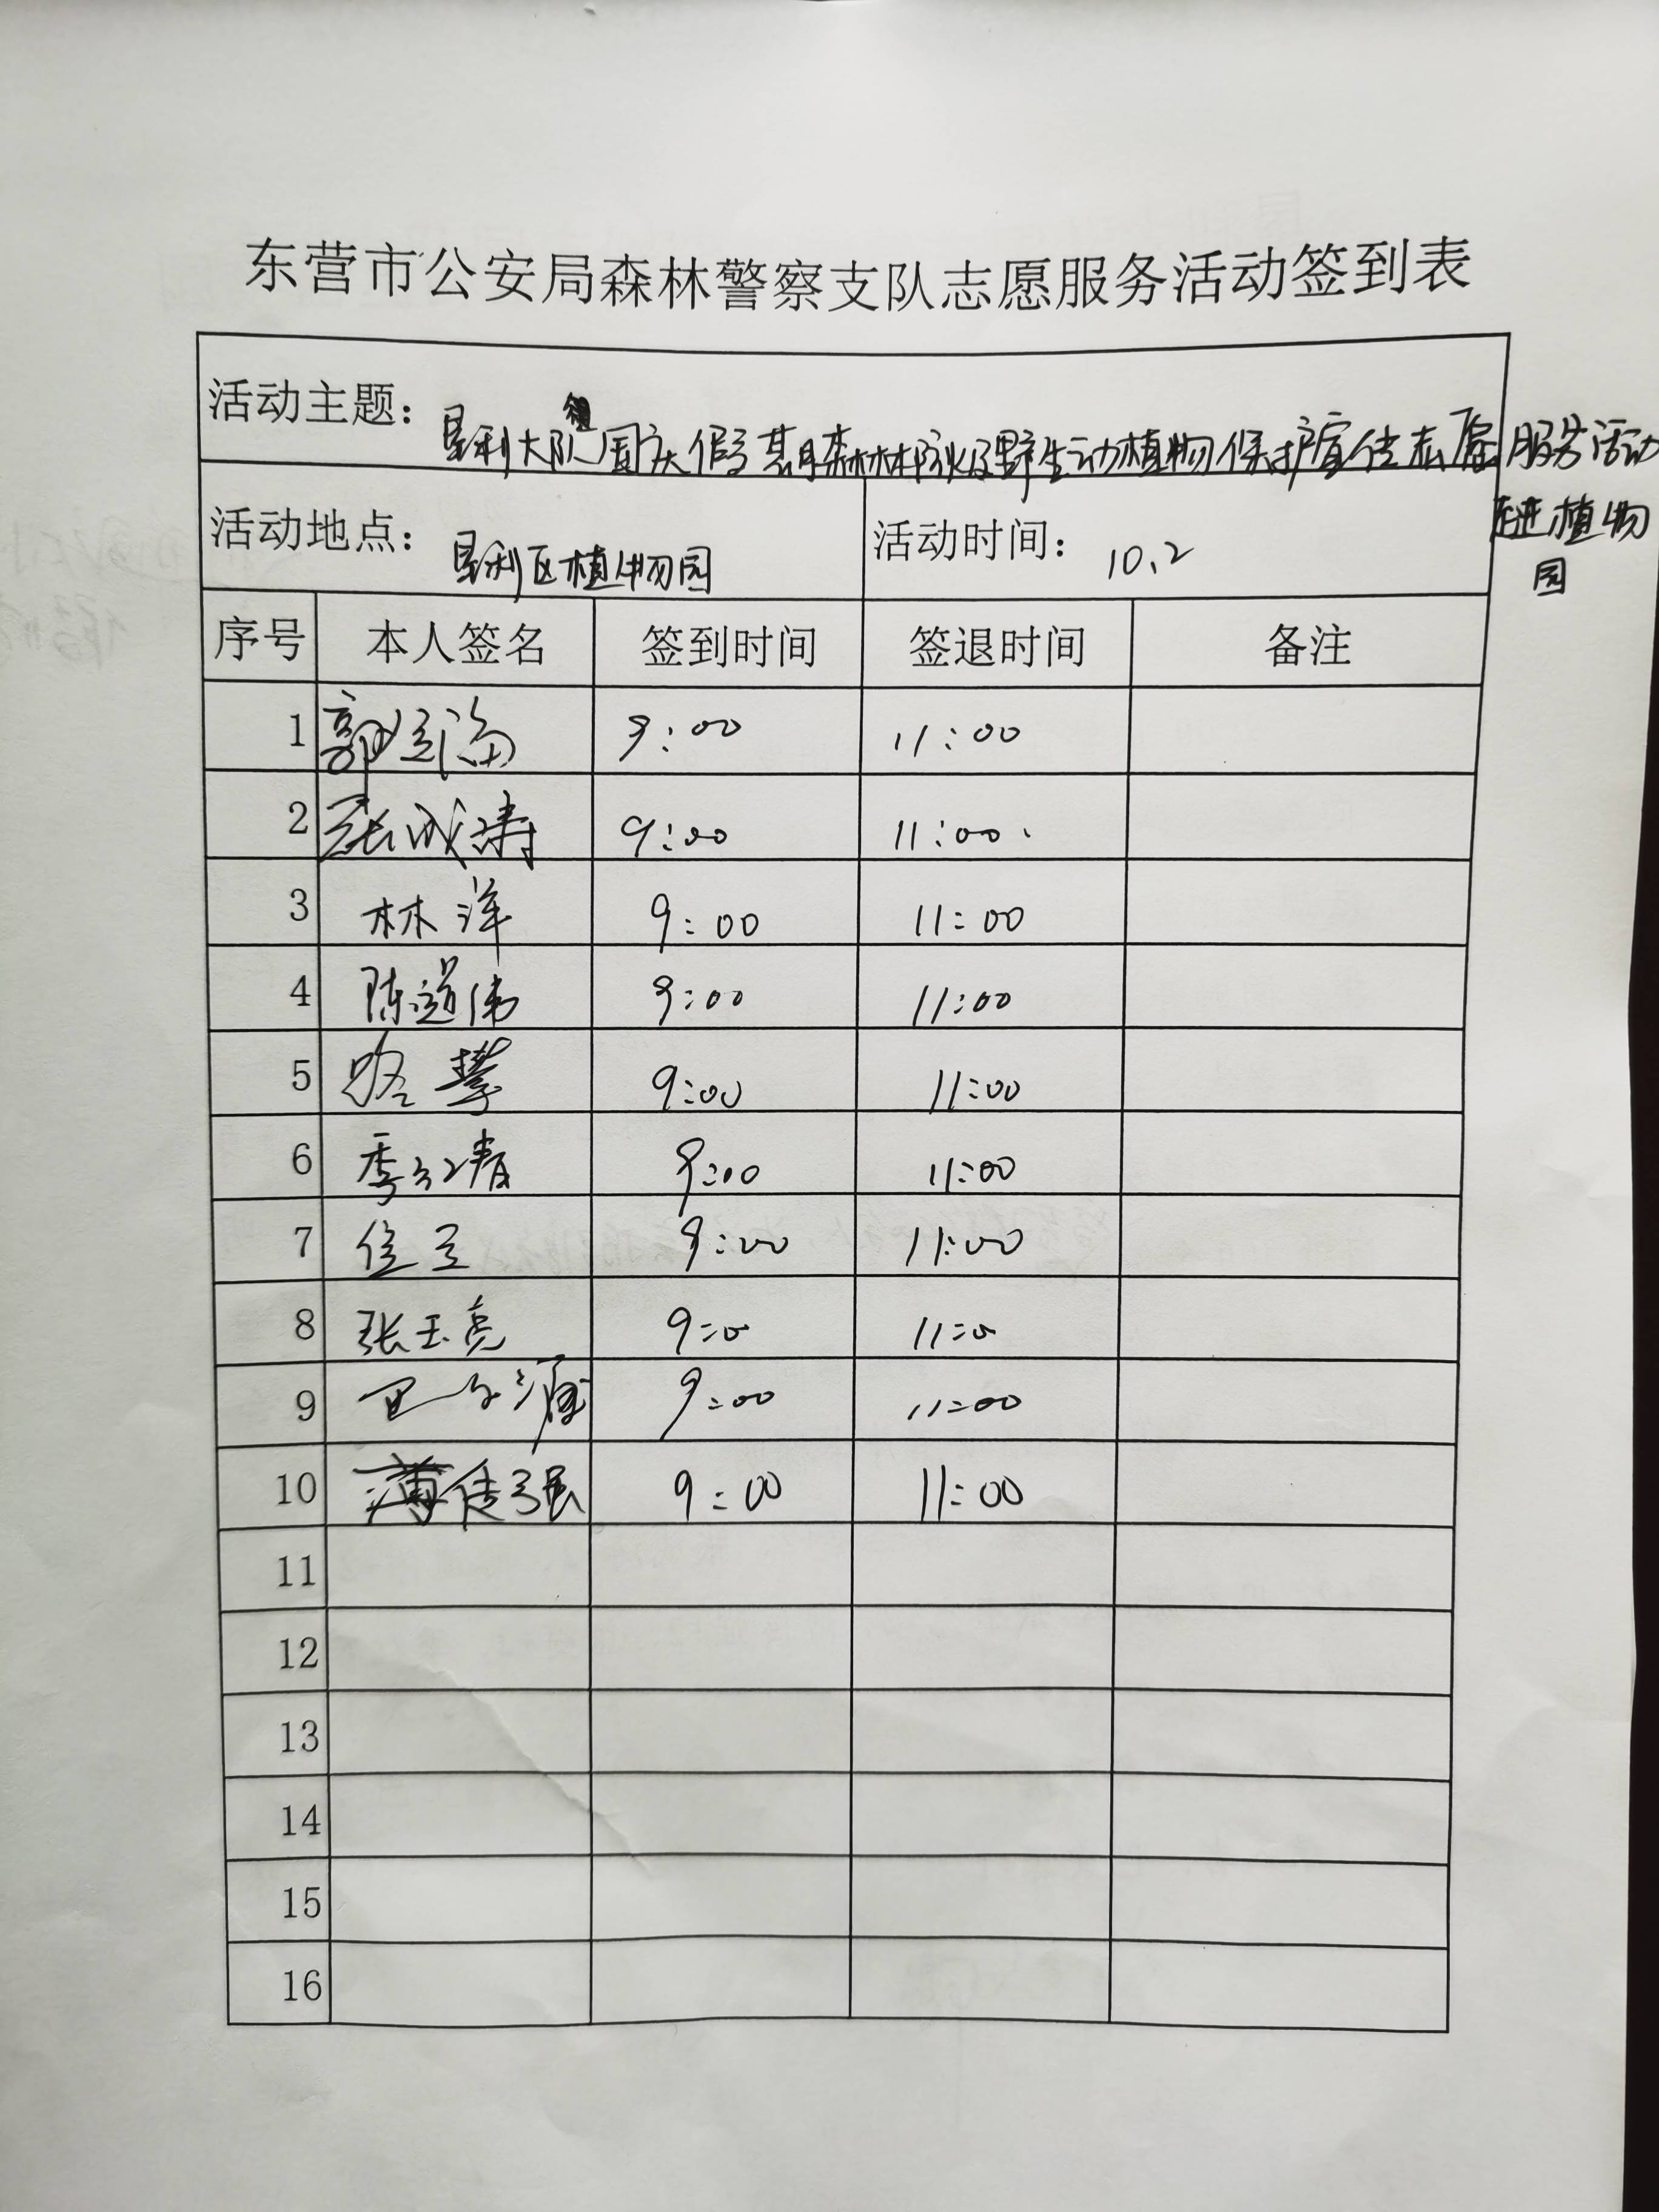 东营市公安局森林警察支队志愿服务活动签到表
活动主题：垦利大队国庆假期森林防火及野生动植物保护宣传志愿服务活动
走进植物园
活动地点：垦利区植物园 活动时间：10.2
序号 本人签名 签到时间 签退时间 备注
1 郭 9:00 11:00
2 张成涛 9:00 11:00
3 林洋 9:00 11:00
4 陈道伟 9:00 11:00
5 9:00 11:00
6 季红青 9:00 11:00
7 9:00 11:00
8 张玉亮 9:00 11:00
9 9:00 11:00
10 薄传强 9:00 11:00
11
12
13
14
15
16